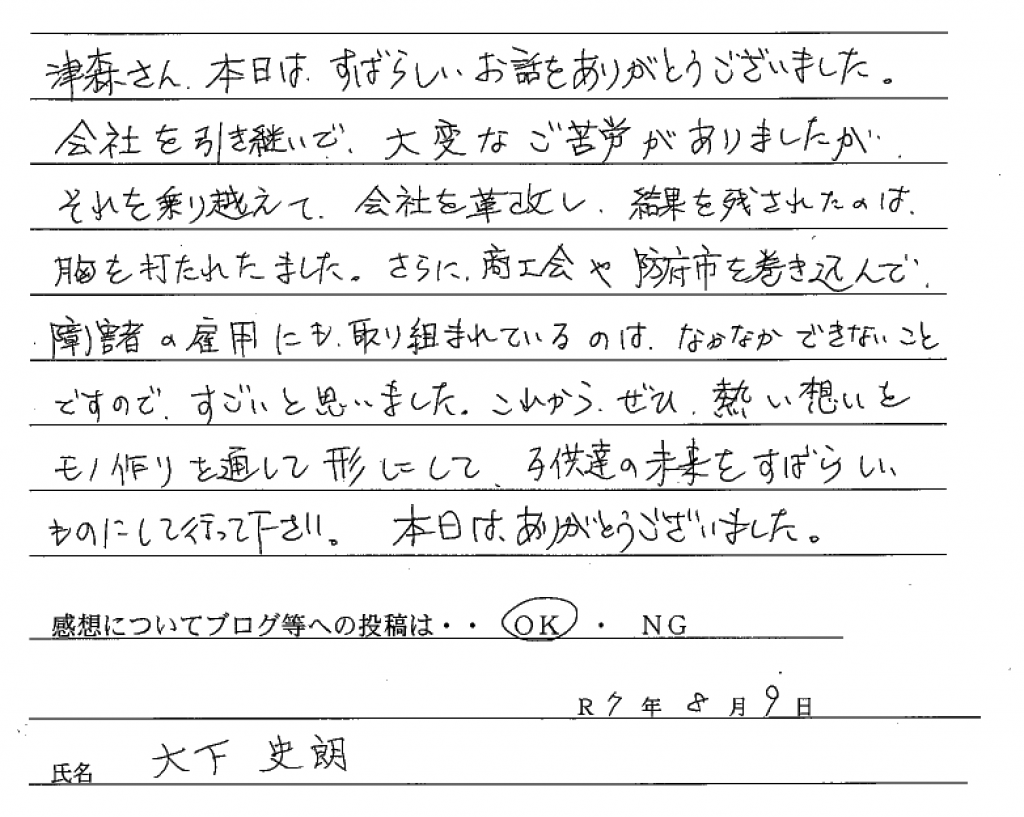 津森さん、本日は、すばらしいお話をありがとうございました。
会社を引き継いで、大変なご苦労がありましたが、
それを乗り越えて、会社を革改し、結果を残されたのは、
胸を打たれたました。さらに、商工会や防府市を巻き込んで、
障害者の雇用にも、取り組まれているのは、なかなかできないこと
ですので、すごいと思いました。これから、ぜひ、熱い想いを
モノ作りを通して形にして、子供達の未来をすばらしい、
ものにして行って下さい。 本日は、ありがとうございました。
感想についてブログ等への投稿は・・ OK ・ NG
R7年8月9日
氏名 大下 史朗